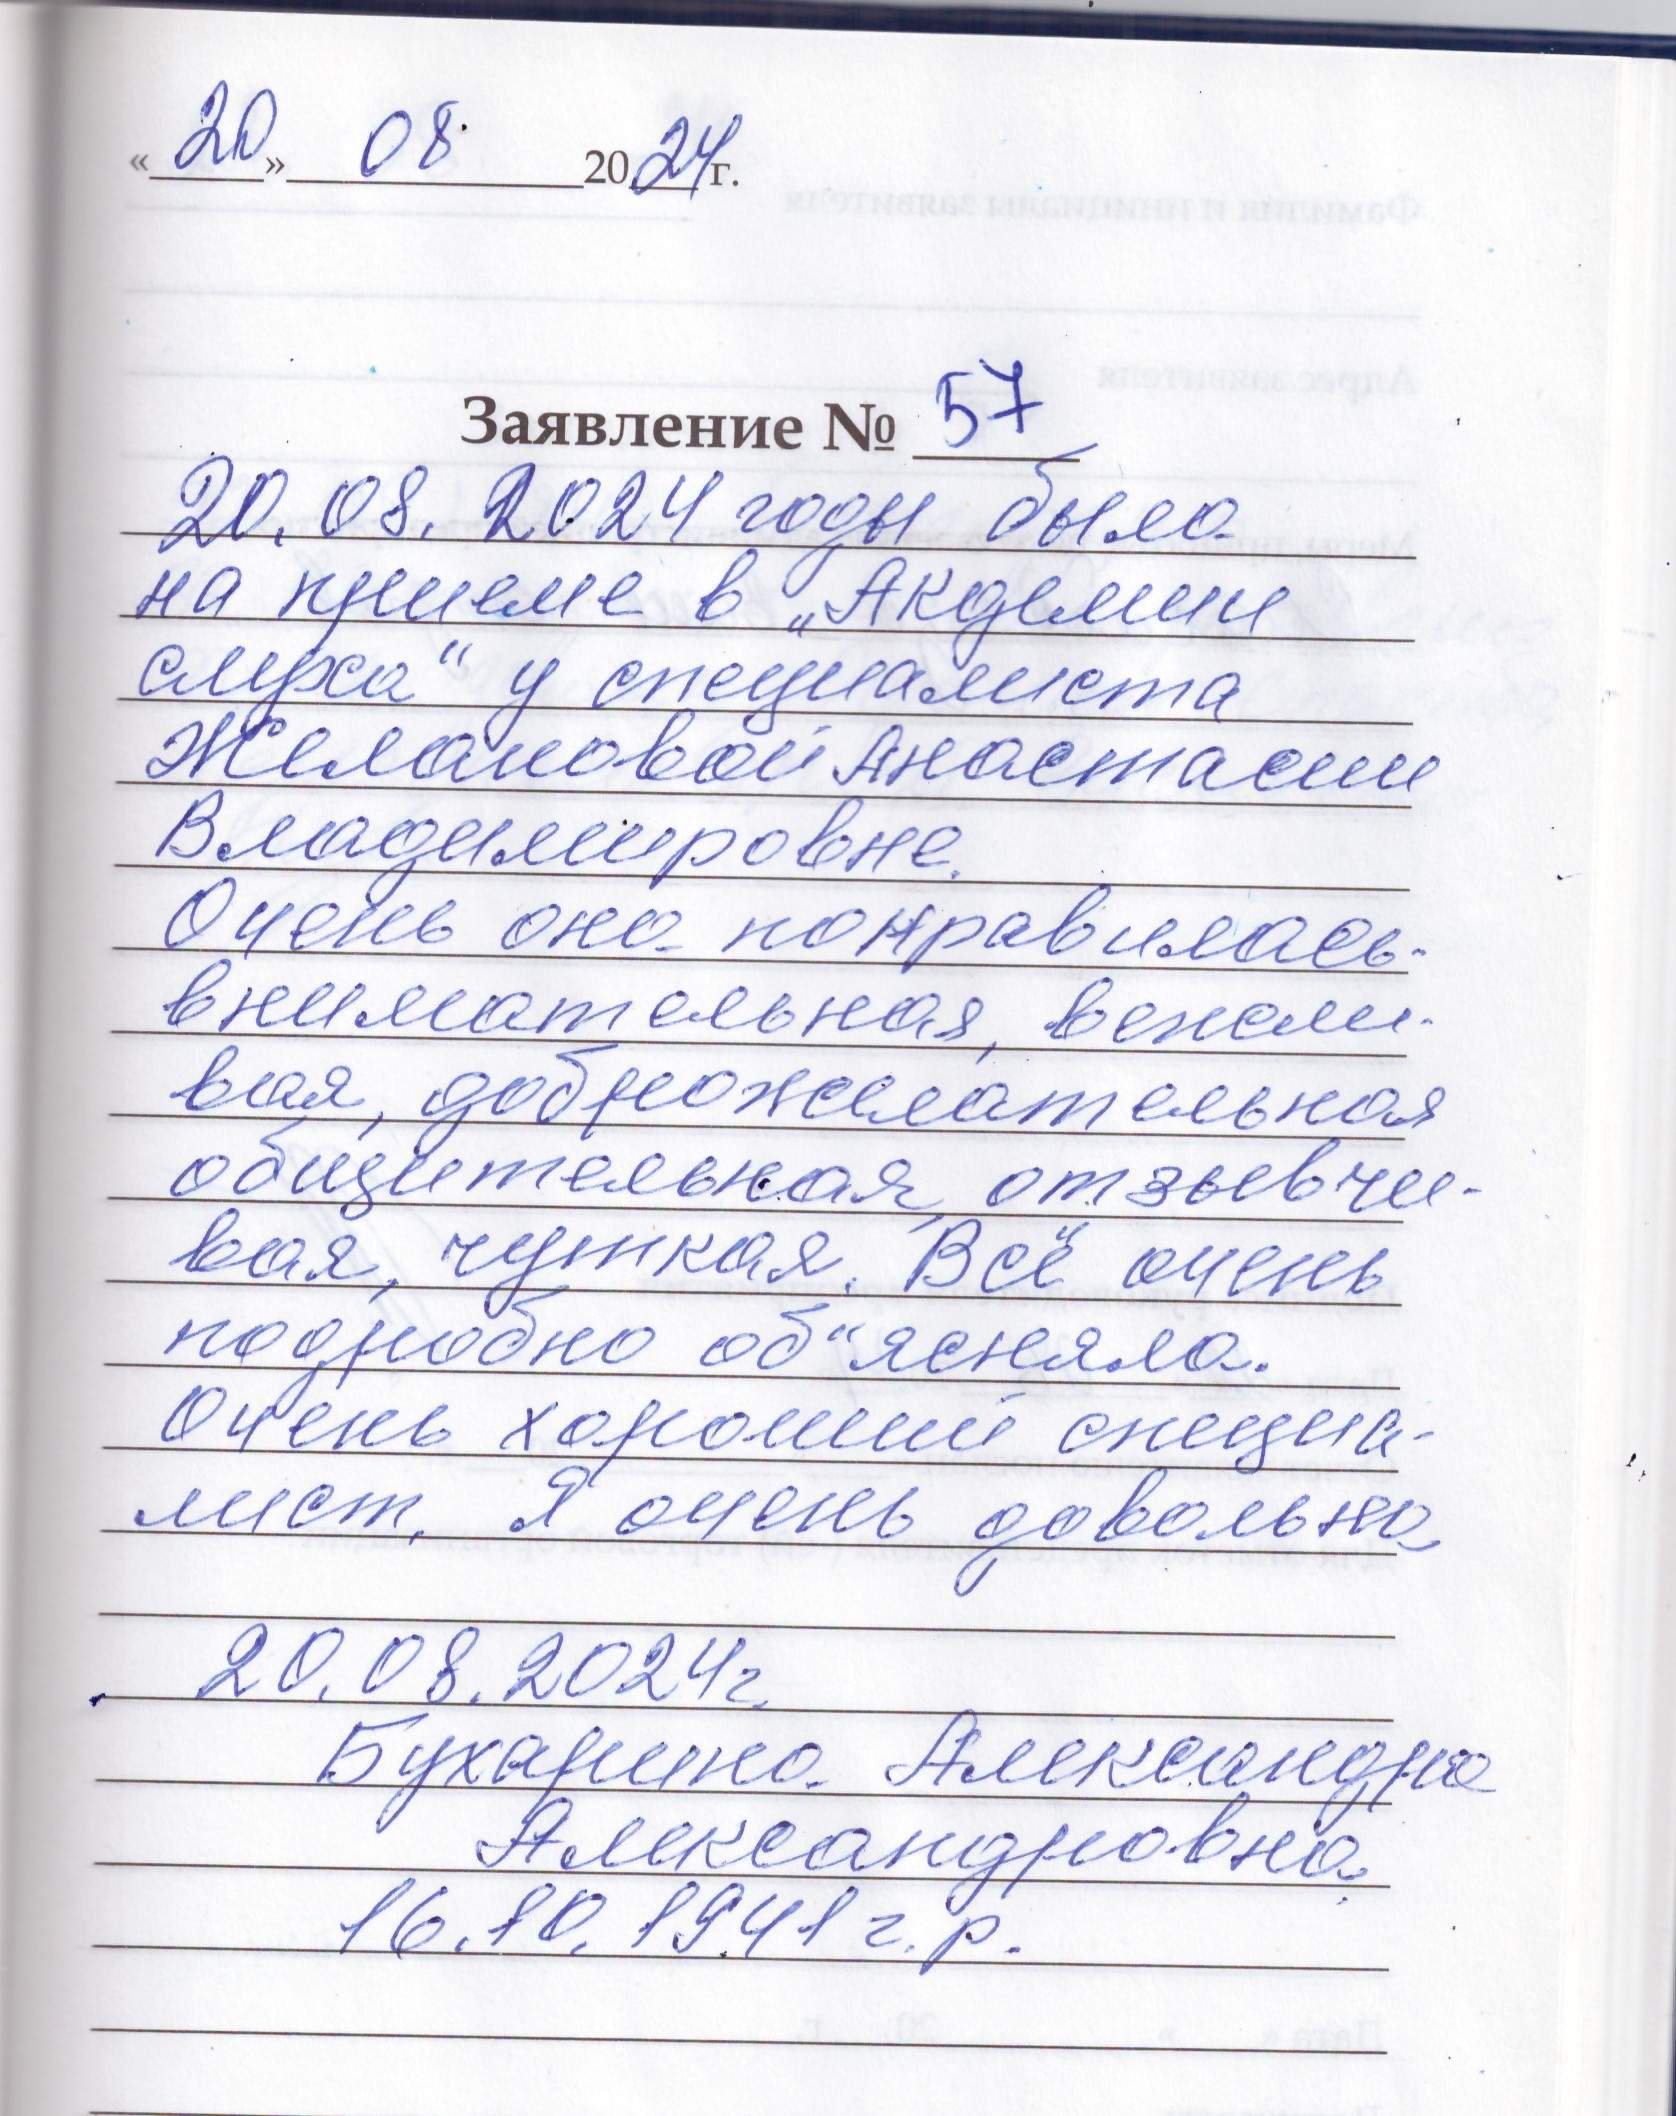 «20» 08 2024 г.
Заявление № 57
20.08.2024 годы была
на приеме в „Акдемии
слуха“ у специалиста
Желановой Анастасии
Владимировне.
Очень она понравилась-
внимательная, вежли-
вая, доброжелательная
общительная, отзывчи-
вая, чуткая. Всё очень
подробно об“ясняла.
Очень хороший специа-
лист. Я очень довольна,
20.08.2024г.
Бухарина Александра
Александровна.
16.10.1941 г.р.